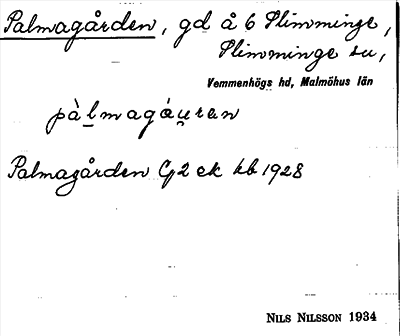 Palmagården, gd å 6 Slimminge,
Slimminge sn,
Vemmenhögs hd, Malmöhus län
pàl̲magáu̯ren
Palmagården G2 ek kb 1928
NILS NILSSON 1934